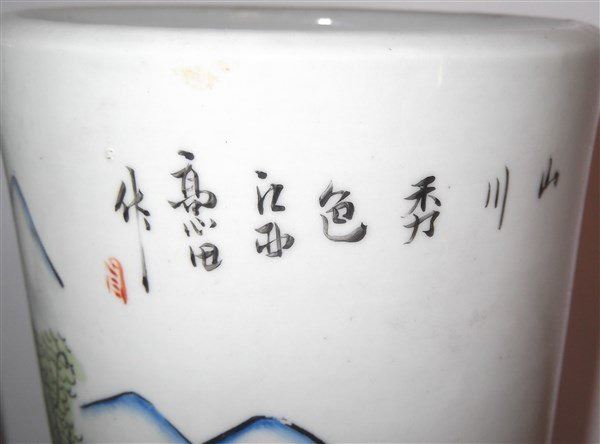 山川秀色
江西
高心田
作